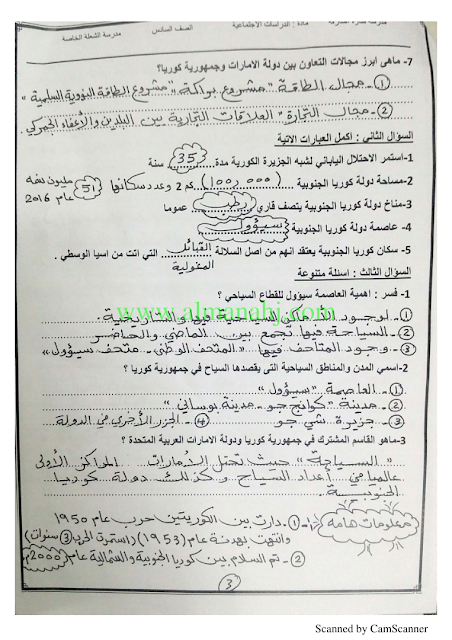 مادة : الدراسات الاجتماعية الصف السادس مدرسة الشعلة الخاصة
7- ماهى ابرز مجالات التعاون بين دولة الامارات وجمهورية كوريا؟
① - مجال الطاقة "مشروع براكة" مشروع الطاقة النووية السلمية "
② - مجال التجارة "العلاقات التجارية بين البلدين والأعفاء الجمركي.
السؤال الثاني : اكمل العبارات الاتية
1-استمر الاحتلال الياباني لشبه الجزيرة الكورية مدة 35 سنة
2-مساحة دولة كوريا الجنوبية (100,000) كم 2 وعدد سكانها (51) مليون نسمة عام 2016
3-مناخ دولة كوريا الجنوبية يتصف قاري رطب عموما
4- عاصمة دولة كوريا الجنوبية سيؤول
5- سكان كوريا الجنوبية يعتقد انهم من اصل السلالة القبائل المغولية التي اتت من اسيا الوسطي .
السؤال الثالث : اسئلة متنوعة
1- فسر : اهمية العاصمة سيؤول للقطاع السياحي ؟
www.almanahj.com
① - لوجود الأماكن السياحية فيها والتاريخية.
② - السياحة فيها تجمع بين الماضي والحاضر
③ - وجود المتاحف فيها "المتحف الوطني - متحف سيؤول"
2-اسمي المدن والمناطق السياحية التى يقصدها السياح في جمهورية كوريا ؟
① - العاصمة "سيؤول"
② - مدينة "كوانج جو - مدينة بوسان"
③ - جزيرة شي جو ④ - الجزر الأخرى في الدولة
3-ماهو القاسم المشترك في جمهورية كوريا ودولة الامارات العربية المتحدة ؟
"السياحة" حيث تحتل الإمارات المراكز الأولى
عالميا في أعداد السياح وكذلك دولة كوريا
الجنوبية
معلومات هامة ① - دارت بين الكوريتين حرب عام 1950
وانتهت بهدنة عام (1953) واستمرت الحرب (3 سنوات)
② - تم السلام بين كوريا الجنوبية والشمالية عام 2000م
3
Scanned by CamScanner